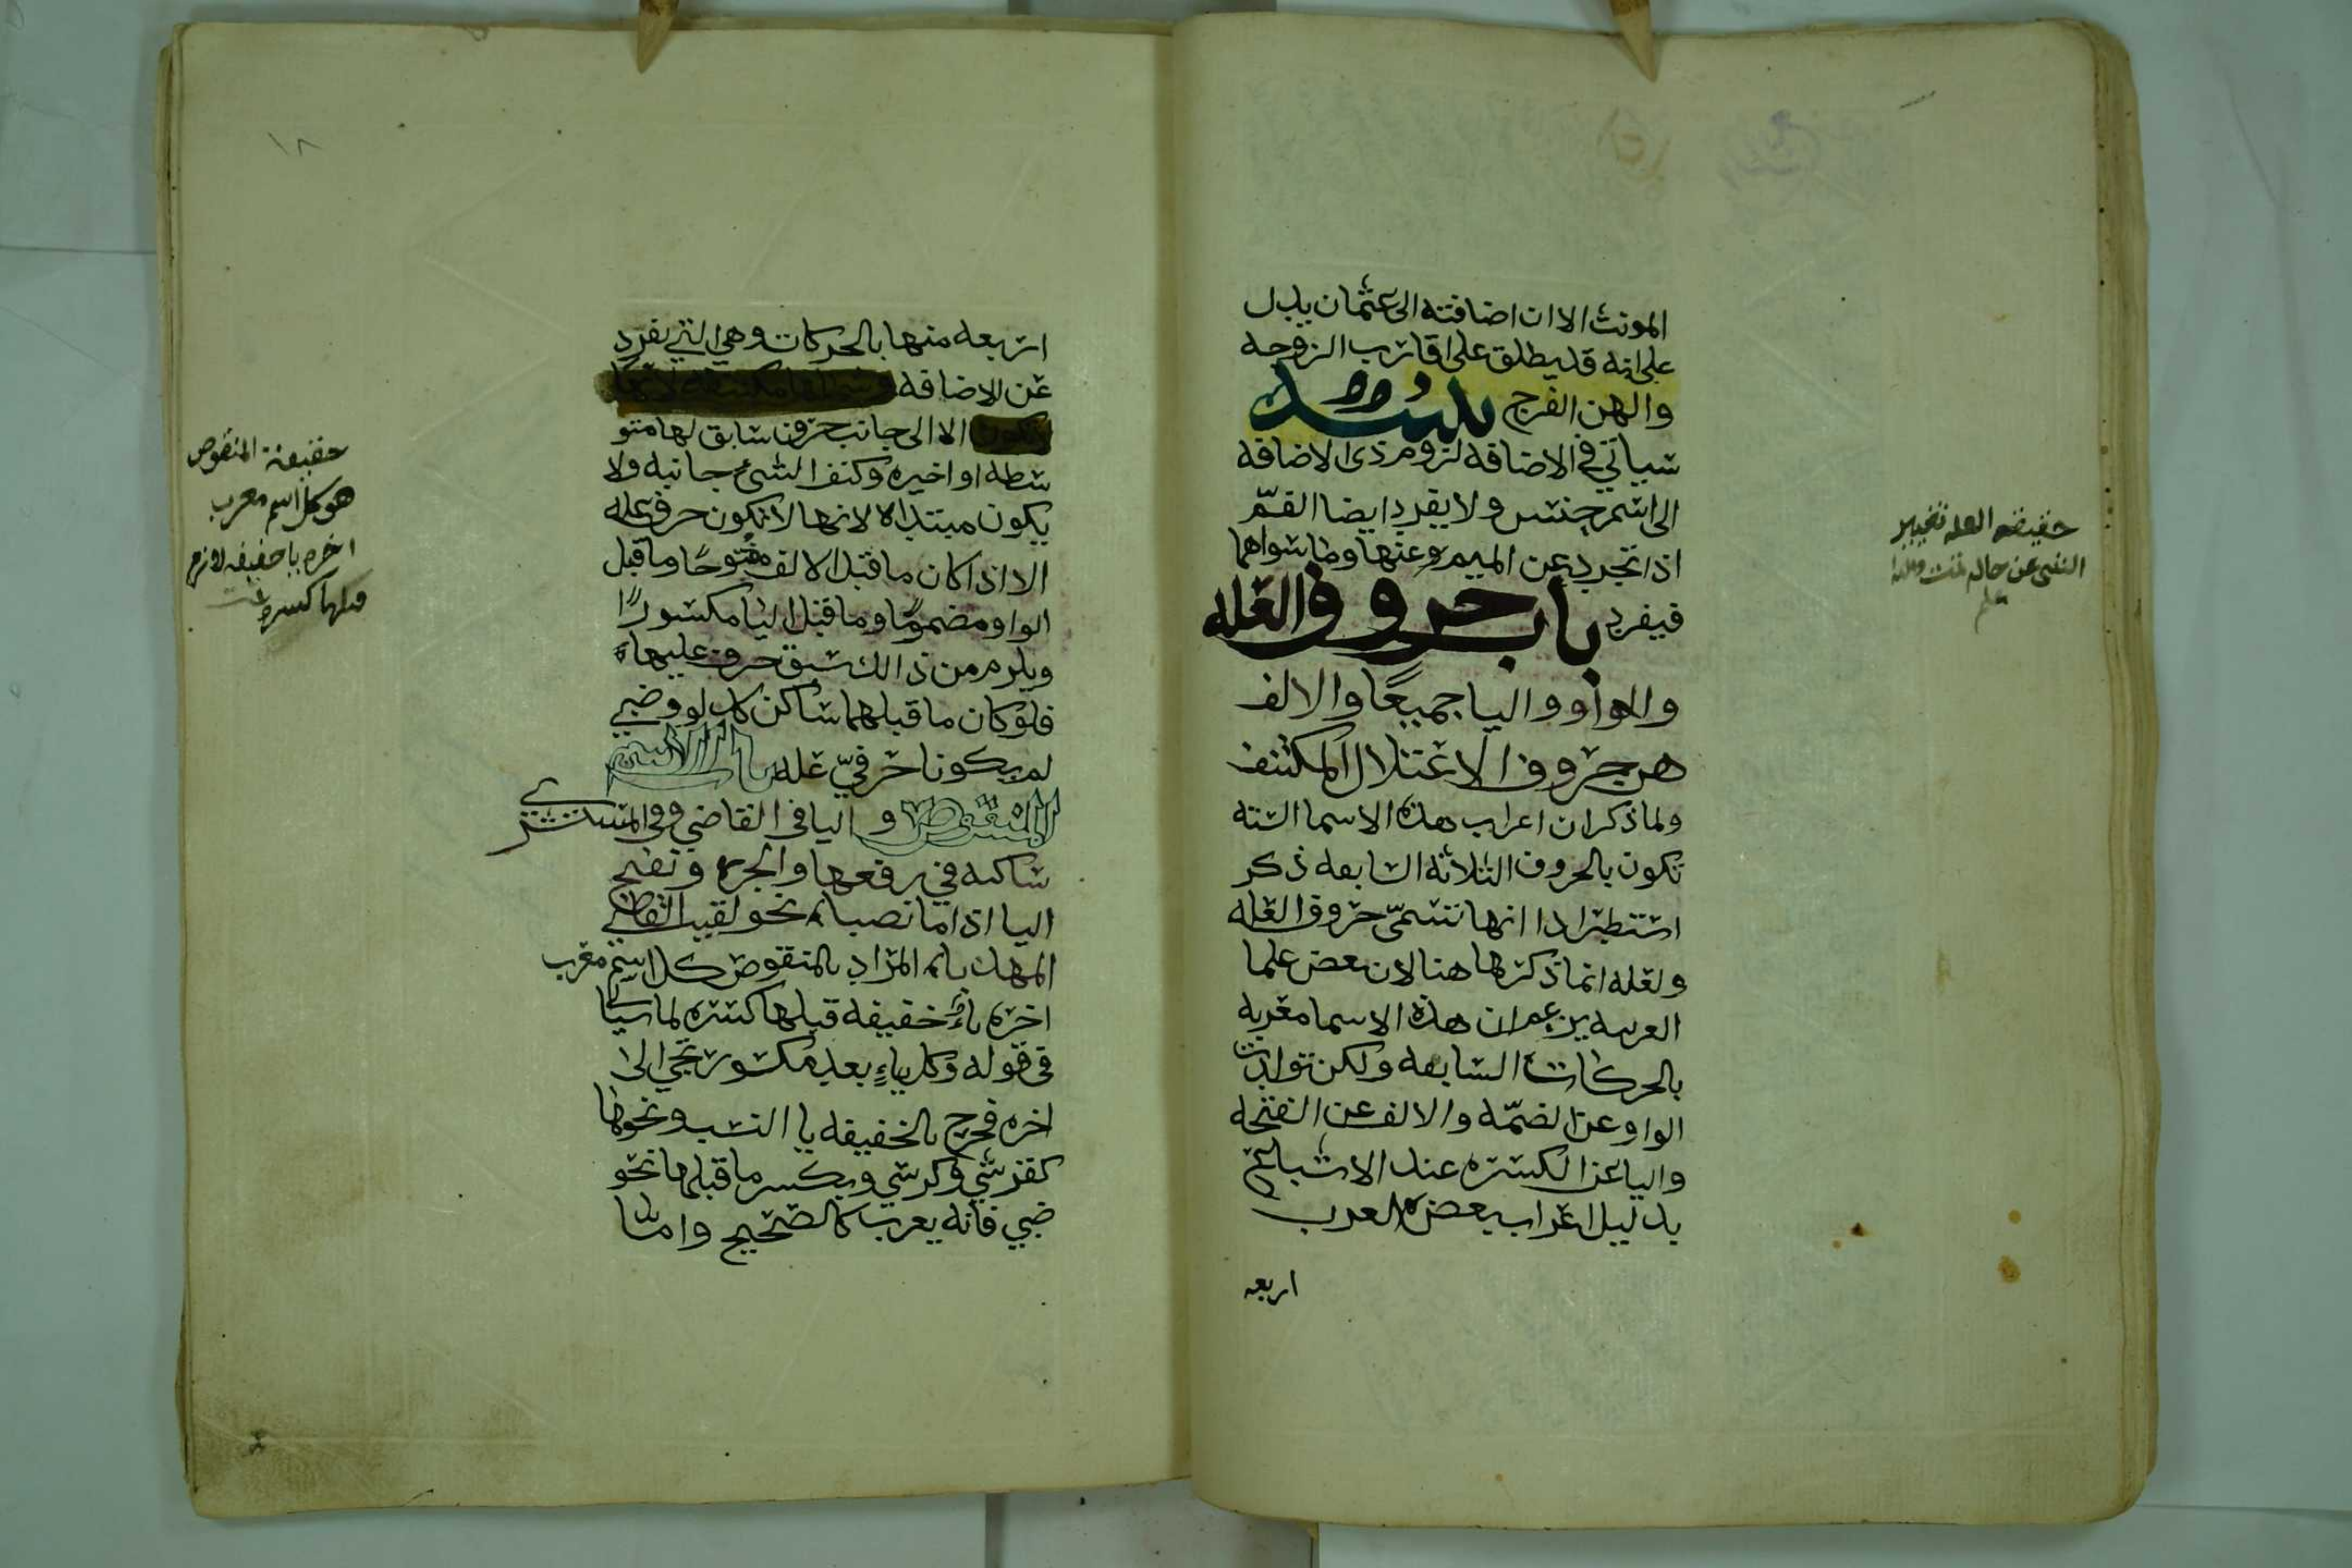 المونث الا ان اضافته الى عثمان يدل
على انه قد يطلق على اقارب الزوجه
والهن الفرج
سياتي في الاضافه لزوم ذي الاضافه
الى اسم جنس ولا يفرد ايضا الفم
اذا تجرد عن الميم وعنها وما سواهما
فيفرد باب حروف العله
والواو واليا جميعًا والالف
هن حروف الاعتلال المكتنف
ولما ذكر ان اعراب هذه الاسما الستة
تكون بالحروف الثلاثة السابعه ذكر
استطرادا انها تسمى حروف العله
ولعله انما ذكرها هنا لان بعض علما
العربيه يزعم ان هذه الاسما معربه
بالحركات السابعه ولكن تولدت
الواو عن الضمّه والالف عن الفتحه
واليا عن الكسره عند الاشباع
بدليل اعراب بعض العرب
اربعه
حقيقه العله تغيير
الشي عن حاله تمت
اربعه منها بالحركات وهي التي يفرد
عن الاضافه
الا الى جانب حرف سابق لها متو
سطه او اخيره وكنف الشيء جانبه ولا
يكون مبتداه لانها لا تكون حرف عله
الا اذا كان ما قبل الالف مفتوحًا وما قبل
الواو مضمومًا وما قبل اليا مكسورًا
ويلزم من ذالك سبق حرف عليها
فلو كان ما قبلهما ساكن كدلو وضبي
لم يكونا حرفيّ عله باب الاسم
المنقوص و اليا في القاضي وفي المستشري
ساكنه في رفعها والجر وتفتح
اليا اذا ما نصبا نحو لقيت القاضي
المهذبا المراد بالمنقوص كل اسم معرب
اخره ياء خفيفه قبلها كسره لما سياتي
في قوله وكل ياءٍ بعد مكسور تجي الى
اخره فخرج بالخفيفه يا النسب ونحوها
كقرشي وكرسي وبكسر ما قبلها نحو
ضبي فانه يعرب كالصحيح واما
حقيقة المنقوص
هو كل اسم معرب
اخره يا خفيفه لازمه
قبلها كسره تمت
١٨